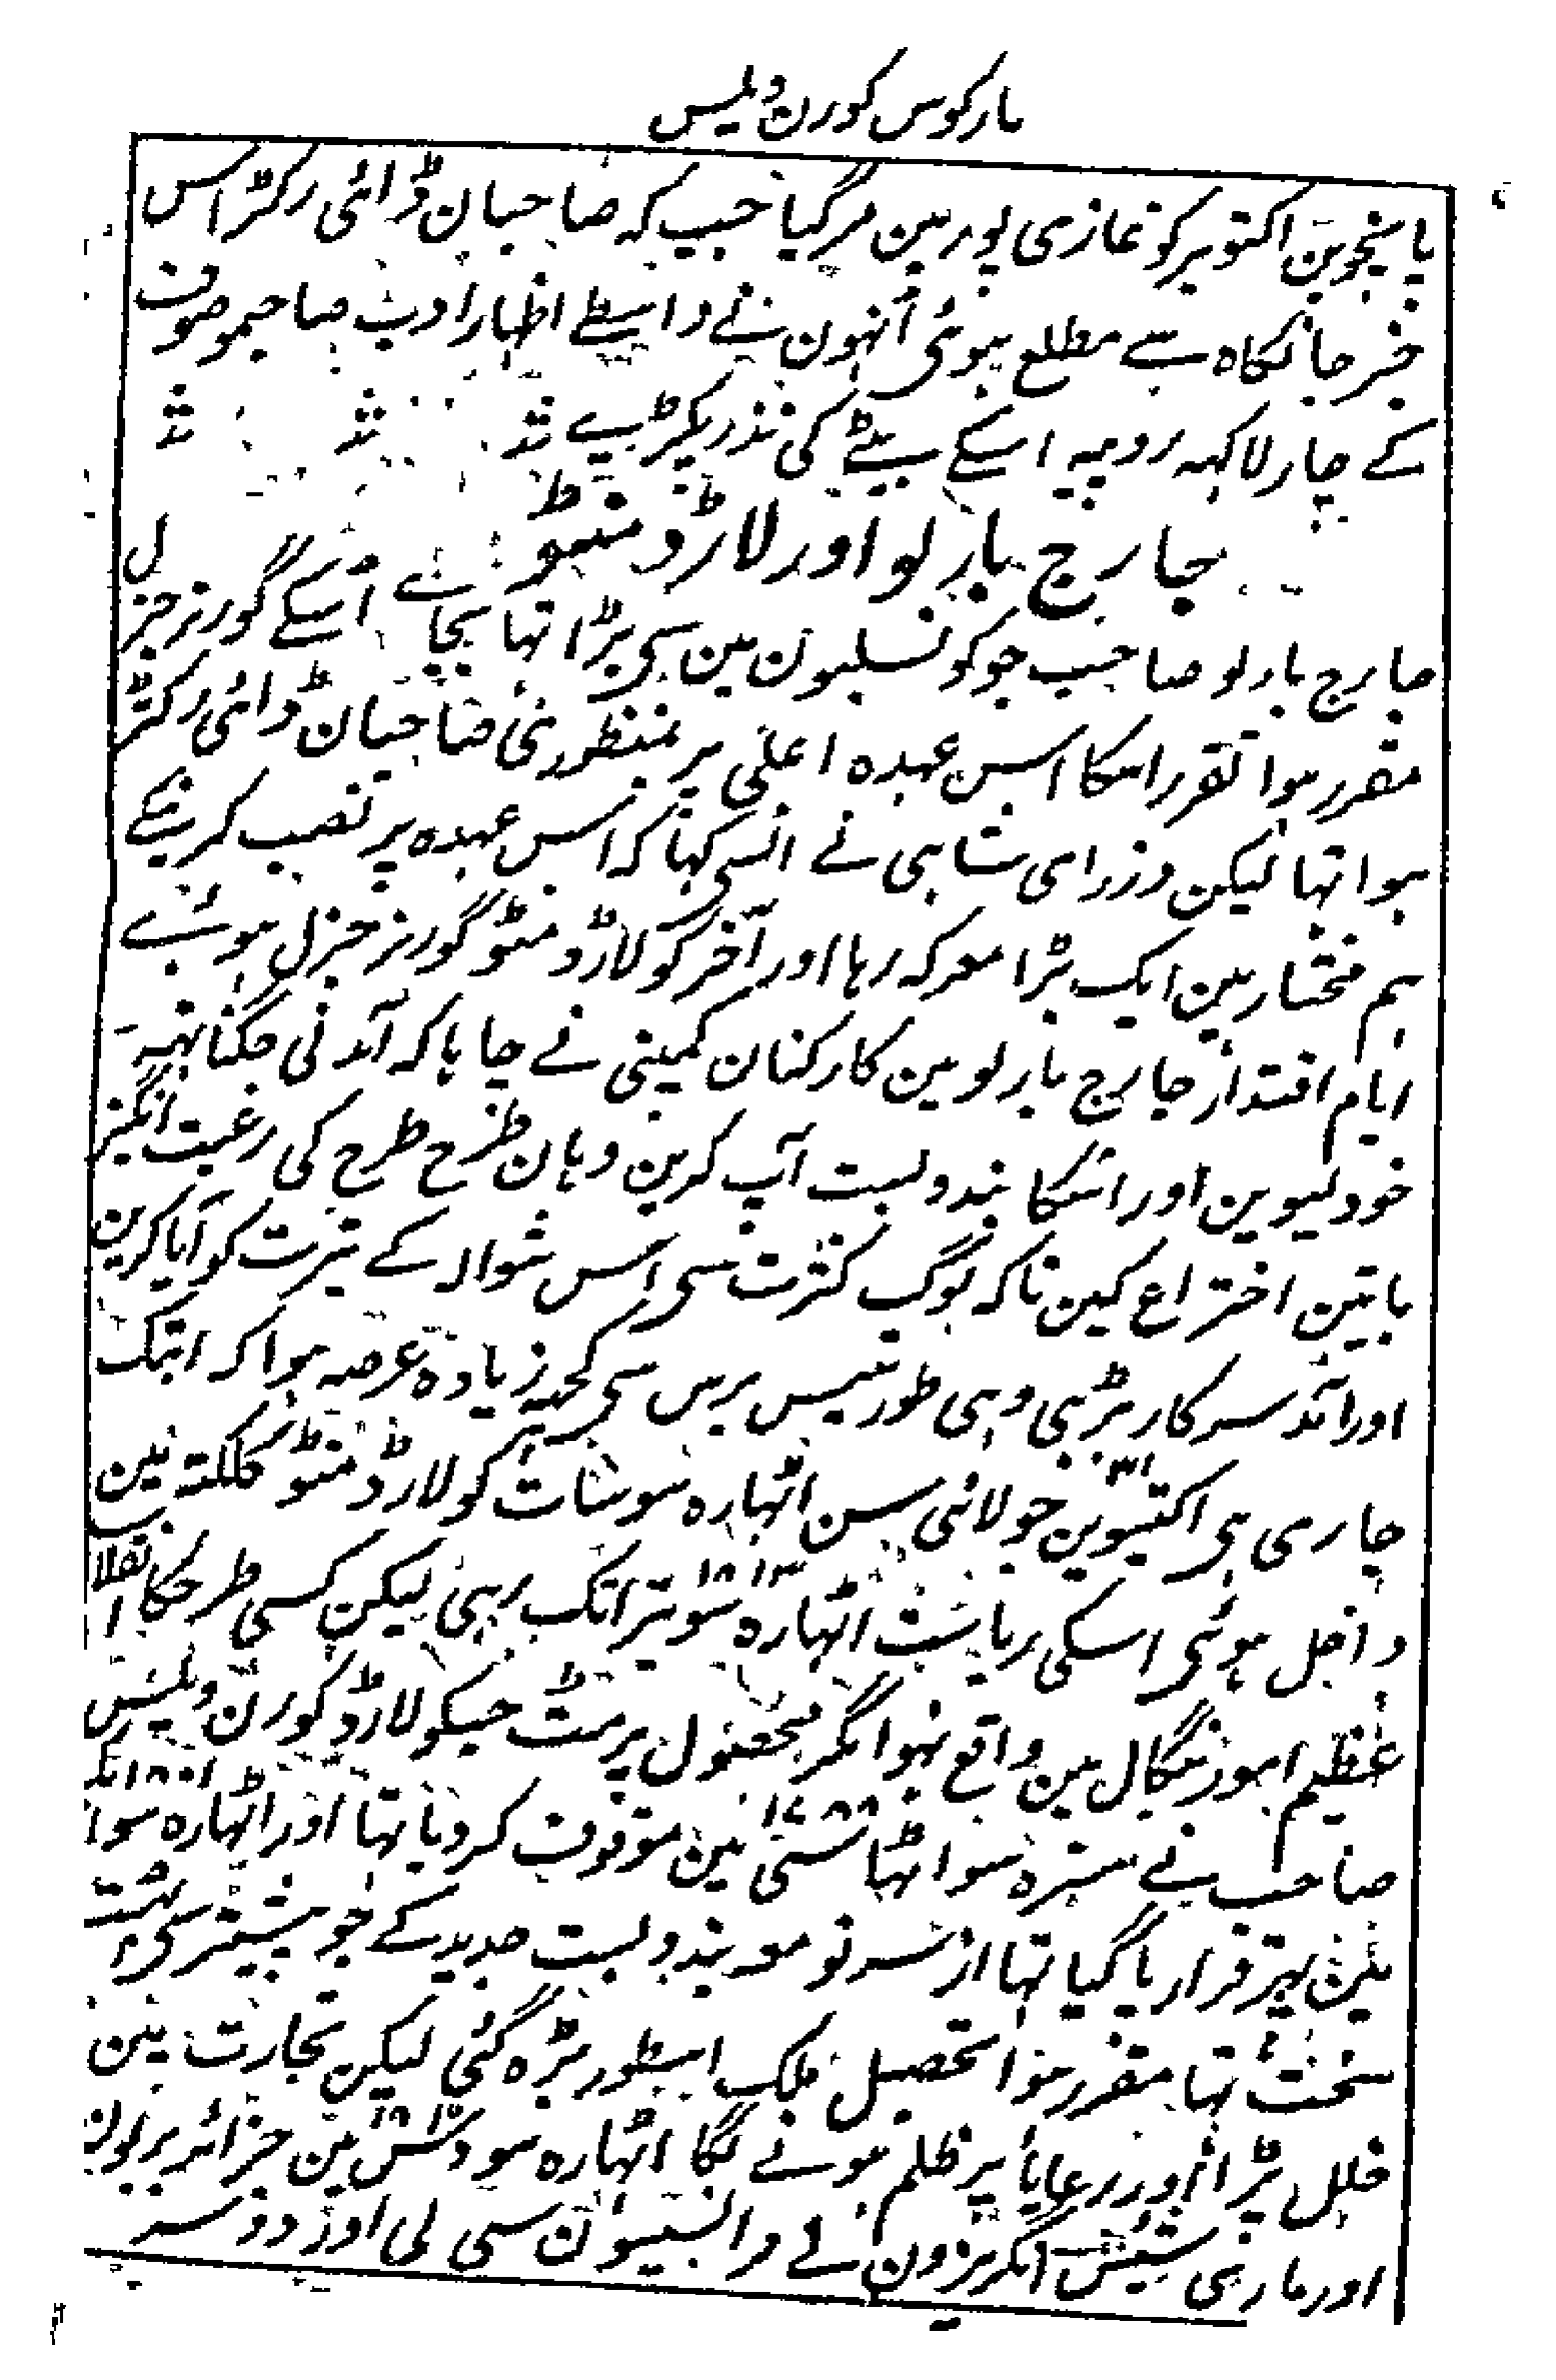 مارکوس کورن ویلس
پانچوین اکتوبر کو غازی پور مین مر گیا جب کہ صاحبان ڈائی رکٹر اس
خبر جانکاہ سے مطلع ہوئی اُنہون نے واسطے اظہار ادب صاحبموصوف
کے چار لاکہہ روپیہ اسکے بیٹے کی نذر پکڑیے
جارج بارلو اور لارڈ منٹو
جارج بارلو صاحب جو کونسلیون مین سی بڑا تہا بجاے اُسکے گورنر جنرل
مقرر ہوا تقرر اسکا اس عہدہ اعلی پر بمنظوری صاحبان ڈائی رکٹر
ہوا تہا لیکن وزرای شاہی نے انسی کہا کہ اس عہدہ پر نصب کرنیکے
ہم مختار ہین ایک بڑا معرکہ رہا اور آخر کو لارڈ منٹو گورنر جنرل ہوئے
ایام اقتدار جارج بارلو مین کارکنان کمپنی نے چاہا کہ آمدنی جگناتہہ
خود لیوین اور اسکا بندوبست آپ کرین وہان طرح طرح کی رغبت انگیز
باتین اختراع کین تاکہ لوگ کثرت سی اس شوالہ کے تیرت کو آیا کرین
اور آمد سرکار بڑہی وہی طور تیس برس سی کچہہ زیادہ عرصہ ہوا کہ ابتک
جاری ہی اکتیسوین ۳۱ جولائی سن اٹہارہ سو سات کو لارڈ منٹو کلکتہ مین
داخل ہوئی اسکی ریاست اٹہارہ سو تیرا ۱۸۱۳ تک رہی لیکن کسی طرحکا انقلاب
عظیم امور بنگال مین واقع نہوا مگر محصول پرمٹ جسکو لارڈ کورن ویلس
صاحب نے سترہ سو اٹہاسی ۱۷۸۸ مین موقوف کر دیا تہا اور اٹہارہ سو ایک ۱۸۰۱
مین پہر قرار پا گیا تہا از سر نو معہ بندوبست جدید کے جو پیشتر سی بہت
سخت تہا مقرر ہوا تحصیل ملک اسطور بڑہ گئی لیکن تجارت مین
خلل پڑا اور رعایا پر ظلم ہونے لگا اٹہارہ سو دس ۱۸۱۰ مین جزائر بربون
اور ماری شیش انگریزون نے فرانسیسیون سی لی اور دوسر